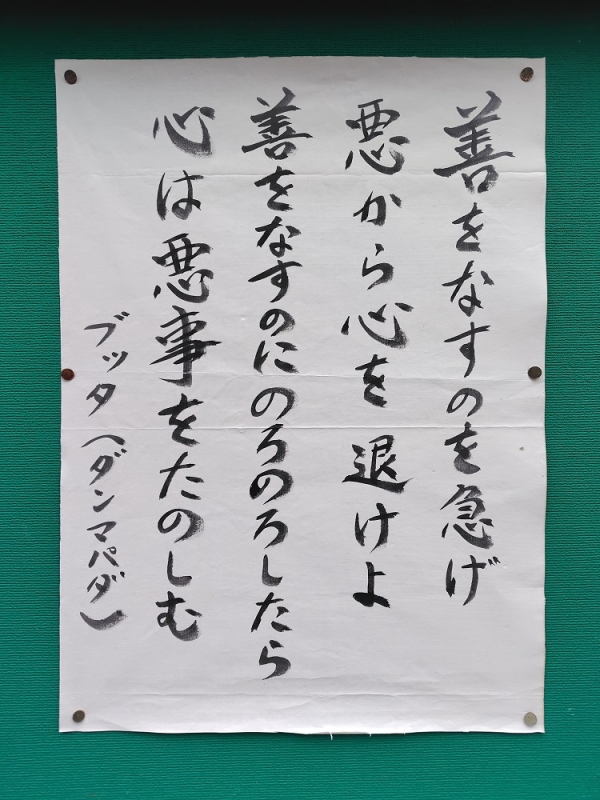 善をなすのを急げ
悪から心を退けよ
善をなすのにのろのろしたら
心は悪事をたのしむ
ブッタ（ダンマパダ）